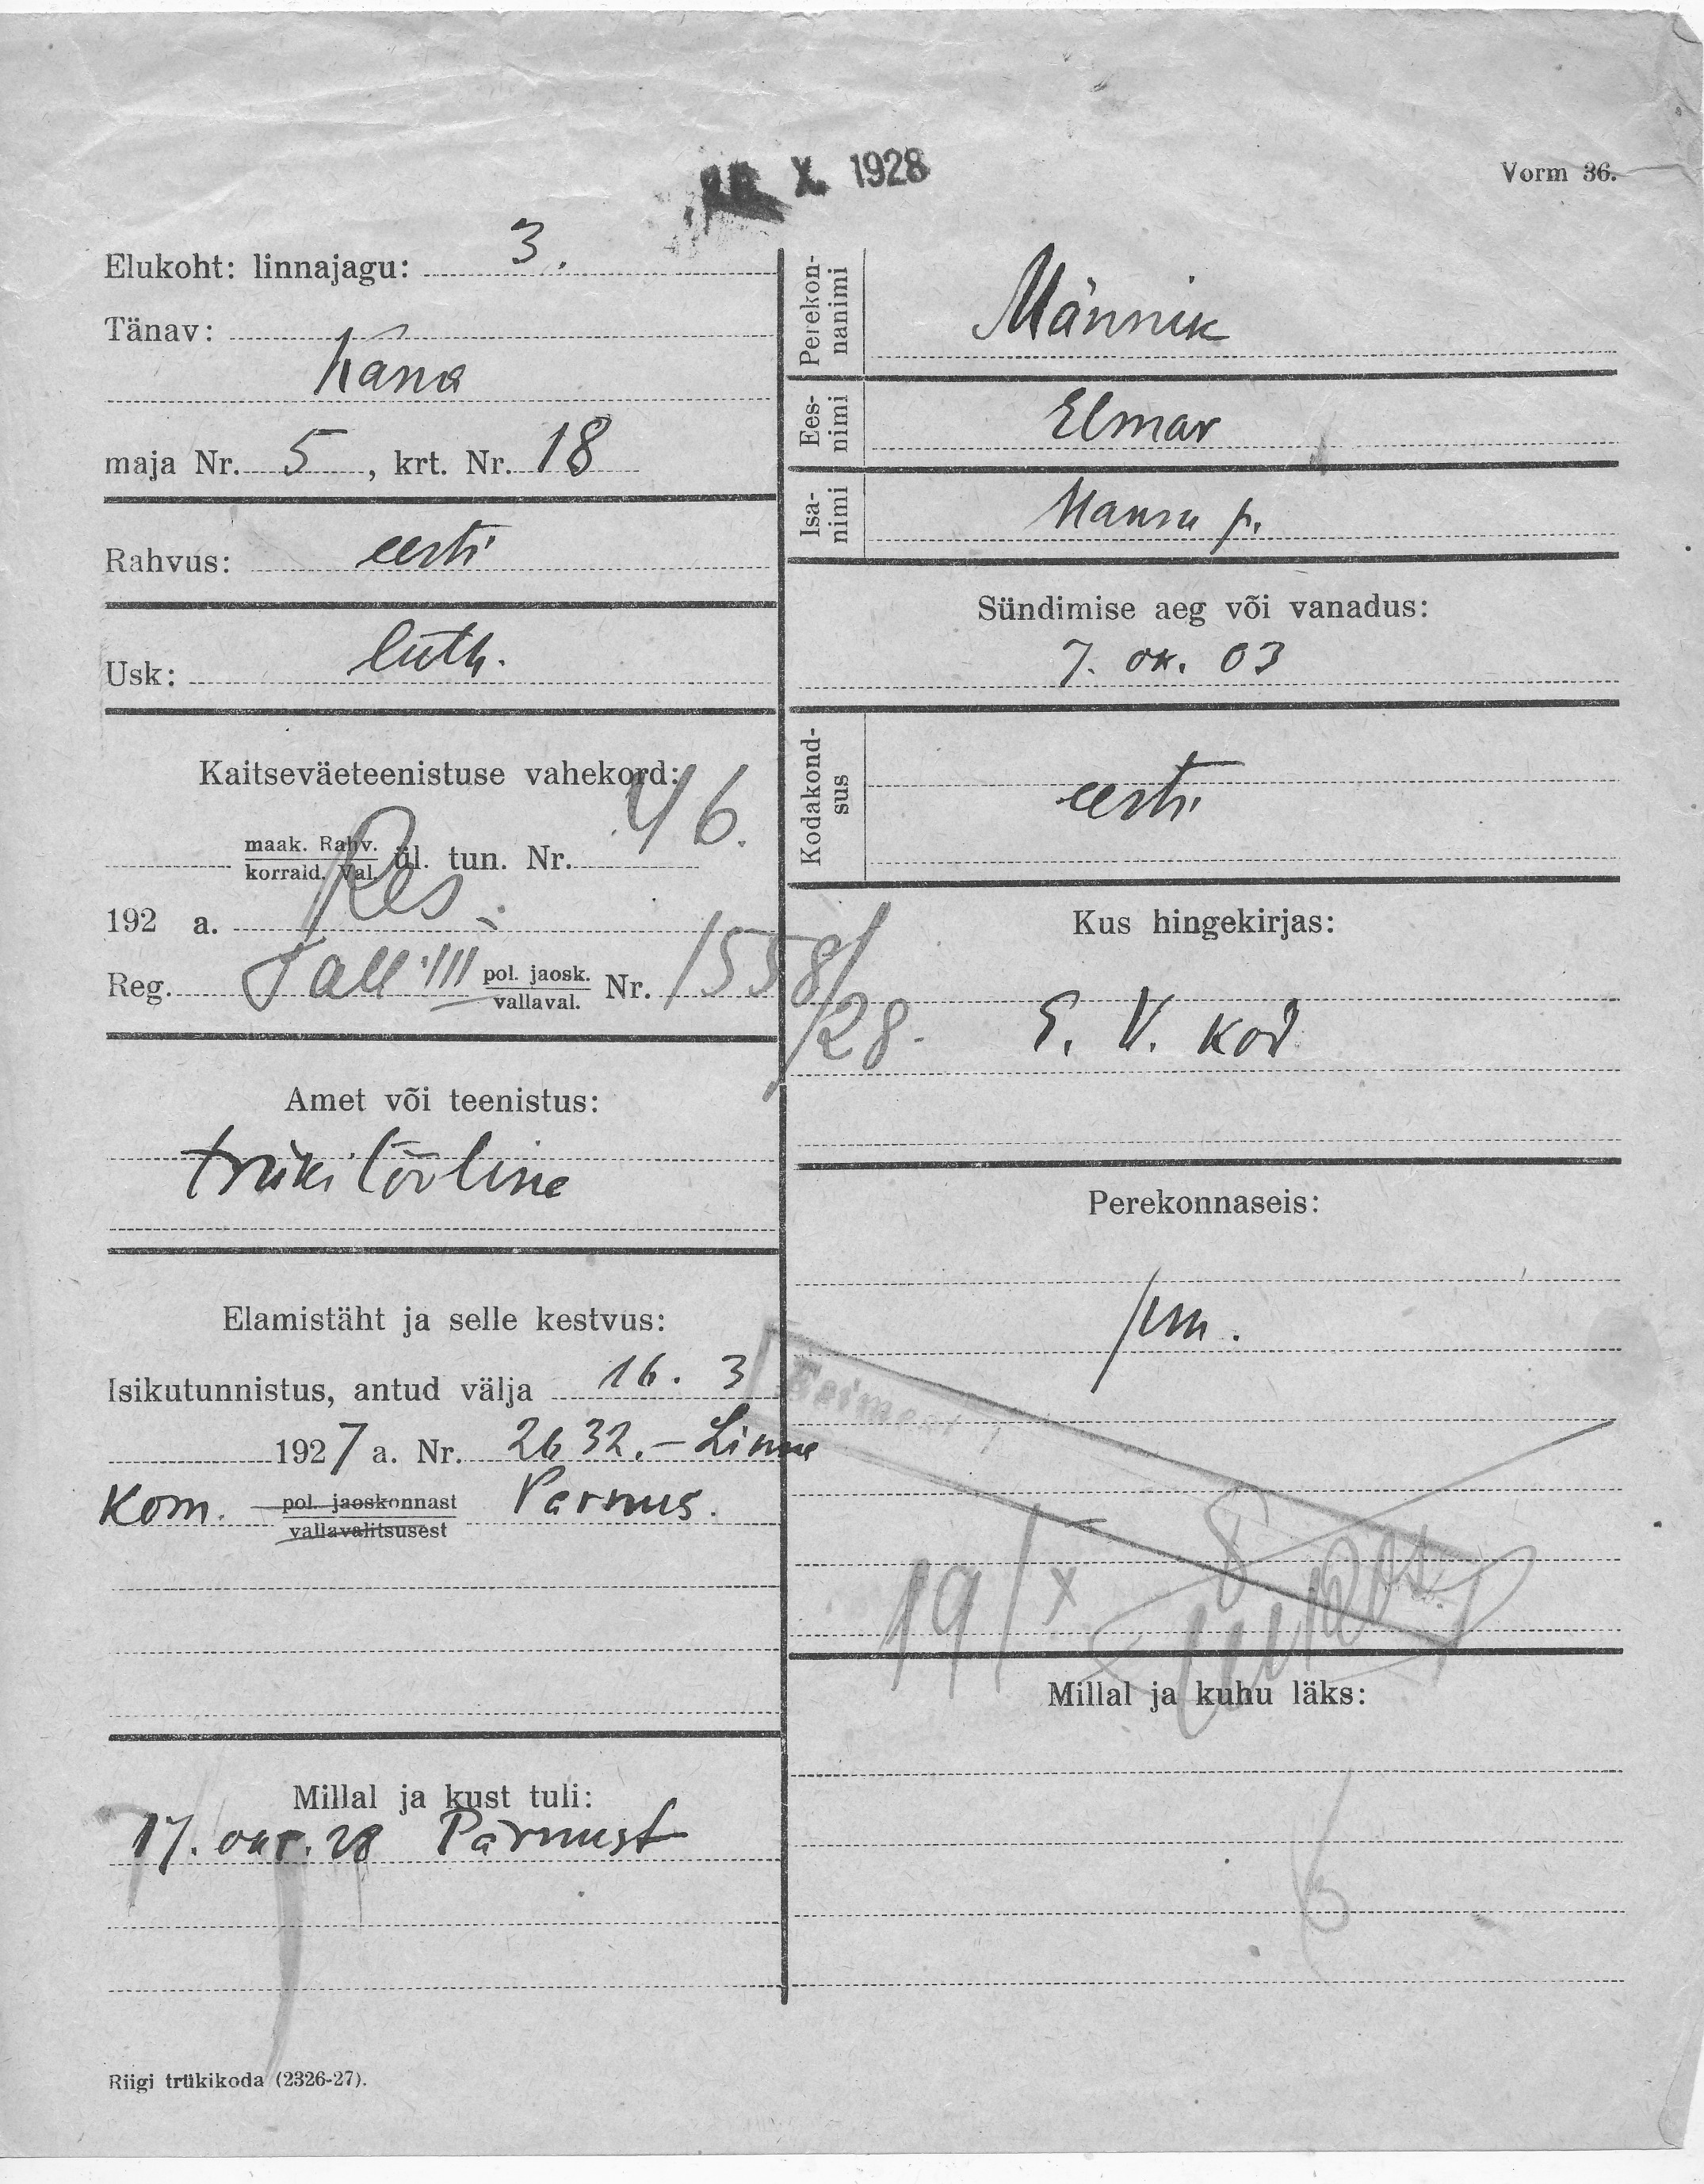 X. 1928
Vorm 36.
Elukoht: linnajagu: 3.
Tänav:
Kana
maja Nr. 5, krt. Nr. 18
Rahvus: eesti
Usk: luth.
Kaitseväeteenistuse vahekord:
maak. Rahv.
korrald. Val. ül. tun. Nr. 46.
192 a. Res.
Reg. Tall III pol. jaosk. Nr. 1558/
vallaval.
/28.
Amet või teenistus:
trükitööline
Elamistäht ja selle kestvus:
Isikutunnistus, antud välja 16. 3
1927 a. Nr. 2632.- Linna
Kom. pol. jaoskonnast Pärnus.
vallavalitsusest
Millal ja kust tuli:
17. okt. 28 Pärnust
Riigi trükikoda (2326-27).
Perekon-
nanimi
Männik
Ees-
nimi
Elmar
Isa-
nimi
Hansu p.
Sündimise aeg või vanadus:
7. ok. 03
Kodakond-
sus
eesti
Kus hingekirjas:
E. V. kod
Perekonnaseis:
19/X
Millal ja kuhu läks: